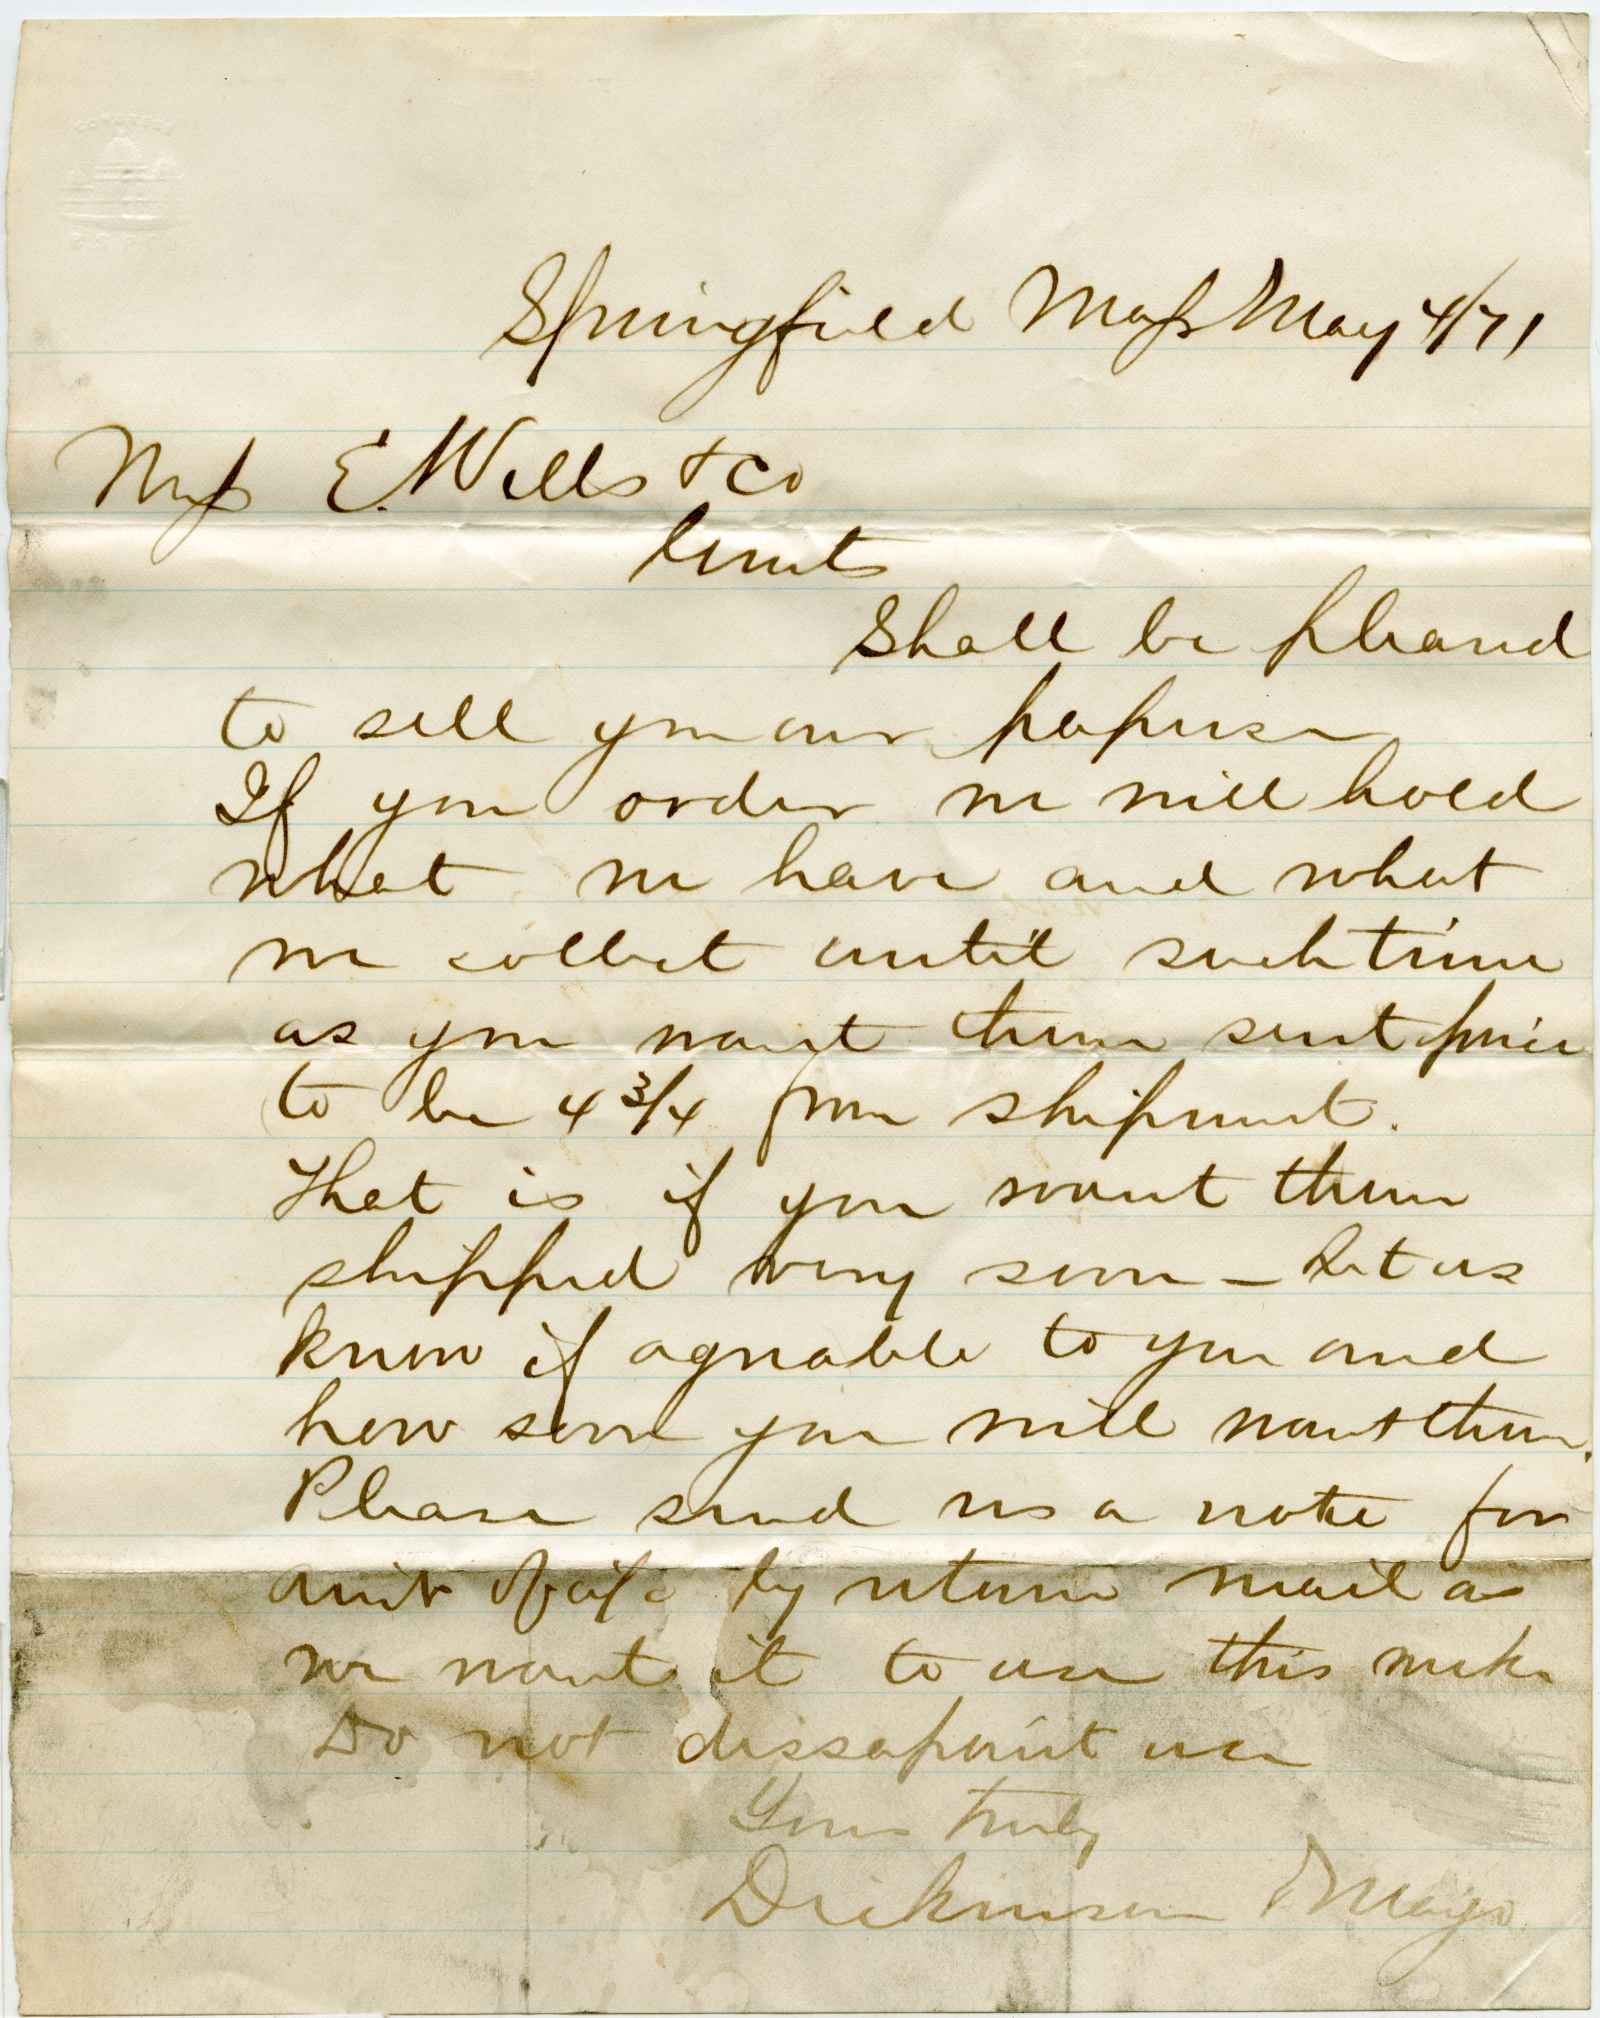 Springfield Mass May 4/71
Mess E. Wells & Co
Gents
Shall be pleased
to sell you our papers
If you order we will hold
what we have and what
we collect until such time
as you want them sent price
to be 4 3/4 from shipment.
That is if you want them
shipped very soon - Let us
know if agreable to you and
how soon you will want them.
Please send us a note for
amt of a/c by return mail as
we want it to use this week
Do not dissapoint us
Yours truly
Dickinson & Mayo